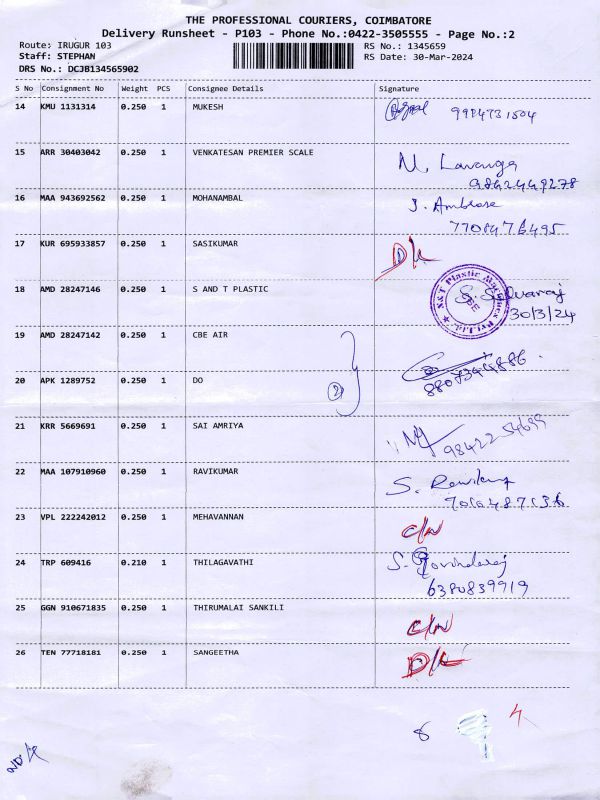 THE PROFESSIONAL COURIERS, COIMBATORE
Delivery Runsheet - P103 - Phone No.:0422-3505555 - Page No.:2
Route: IRUGUR 103
RS No.: 1345659
Staff: STEPHAN
RS Date: 30-Mar-2024
DRS No.: DCJB134565902
S No Consignment No Weight PCS Consignee Details Signature
14 KMU 1131314 0.250 1 MUKESH
15 ARR 30403042 0.250 1 VENKATESAN PREMIER SCALE
9842449278
16 MAA 943692562 0.250 1 MOHANAMBAL J. Ambrose
7708476495
17 KUR 695933857 0.250 1 SASIKUMAR D/L
18 AMD 28247146 0.250 1 S AND T PLASTIC G. Selvaraj
30/3/24
19 AMD 28247142 0.250 1 CBE AIR
8807344886
20 APK 1289752 0.250 1 DO 2
21 KRR 5669691 0.250 1 SAI AMRIYA
22 MAA 107910960 0.250 1 RAVIKUMAR
23 VPL 222242012 0.250 1 MEHAVANNAN C/N
24 TRP 609416 0.210 1 THILAGAVATHI S. Govindaraj
6380839919
25 GGN 910671835 0.250 1 THIRUMALAI SANKILI C/N
26 TEN 77718181 0.250 1 SANGEETHA D/L
8 4